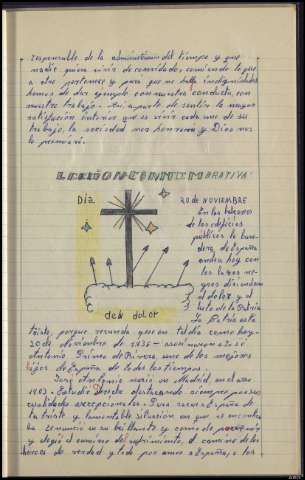 responsable de la administración del tiempo y que
nadie quiera vivir de convidado, comiendo lo que
a otro pertenece y para que no haya indignidades
hemos de dar ejemplo con nuestra conducta, con
nuestro trabajo. Así, aparte de sentir la mayor
satisfacción interior que es vivir cada uno de su
trabajo, la sociedad nos honrará y Dios nos
lo premiará.
LECCION CONMEMORATIVA
Día
del dolor
20 DE NOVIEMBRE
En los balcones
de los edificios
públicos la ban-
dera de España
ondea hoy con
los lazos ne-
gros
el dolor y el
luto de la Patria.
La Patria está
triste, porque recuerda que en tal día como hoy-
20 de Noviembre de 1936- asesinaron a José
Antonio Primo de Rivera, uno de los mejores
hijos de España, de todos los tiempos.
José Antonio nació en Madrid, en el año
1903. Estudió Derecho destacando siempre por sus
cualidades excepcionales. Para sacar a España de
la triste y lamentable situación en que se encontra
ba renunció a su brillante y
y eligió el camino del sufrimiento, el camino de los
héroes de verdad y todo por amor a España, a los